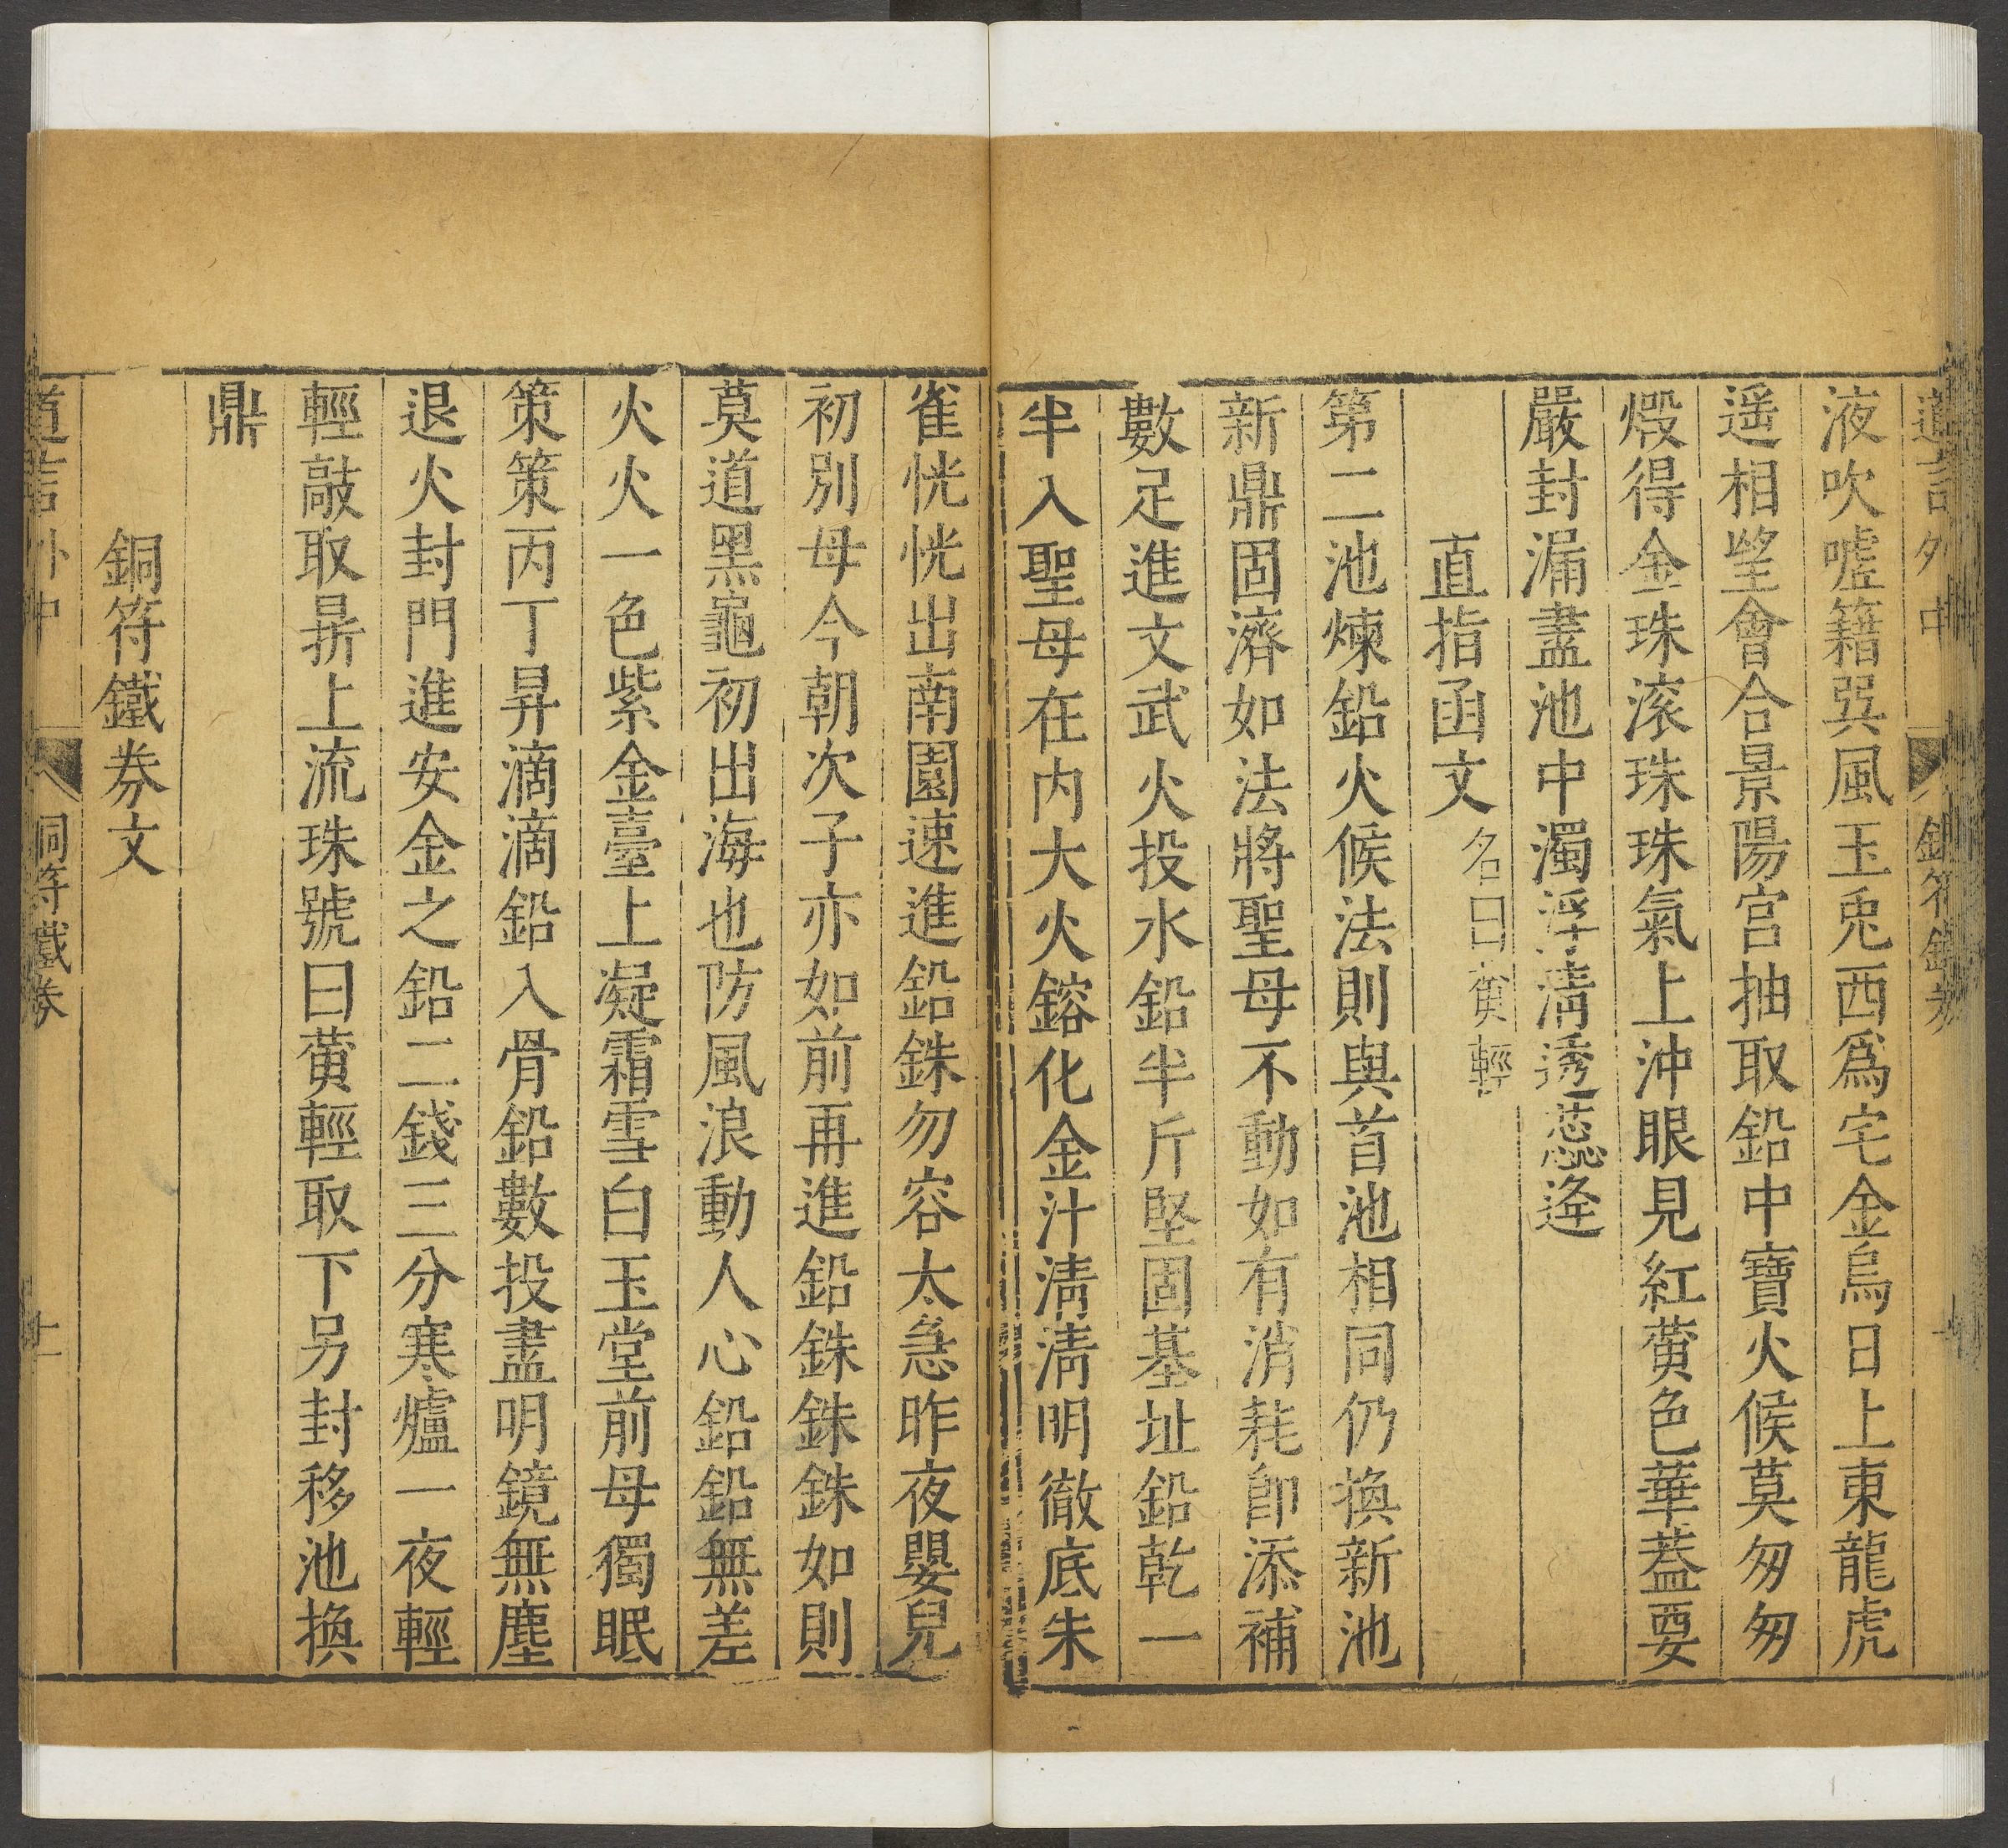 道言外中 銅符鐵券
液吹噓籍巽風玉兎西爲宅金烏日上東龍虎
遥相望會合景陽宫抽取鉛中寶火候莫匆匆
煅得金珠滚珠珠氣上沖眼見紅黄色華葢要
嚴封漏盡池中濁浮清透蕊逄
直指函文名曰黄輕
第二池煉鉛火候法則與首池相同仍換新池
新鼎固濟如法將聖母不動如有消耗即添補
數足進文武火投水鉛半斤堅固基址鉛乾一
半入聖母在内大火鎔化金汁清清明徹底朱
雀恍恍出南園速進鉛銖勿容太急昨夜嬰兒
初別母今朝次子亦如前再進鉛銖銖銖如則
莫道黑龜初出海也防風浪動人心鉛鉛無差
火火一色紫金臺上凝霜雪白玉堂前母獨眠
策策丙丁昇滴滴鉛入骨鉛數投盡明鏡無塵
退火封門進安金之鉛二錢三分寒爐一夜輕
輕敲取昻上流珠號曰黄輕取下另封移池換
鼎
銅符鐵券文
道言外中 銅符鐵券 十一